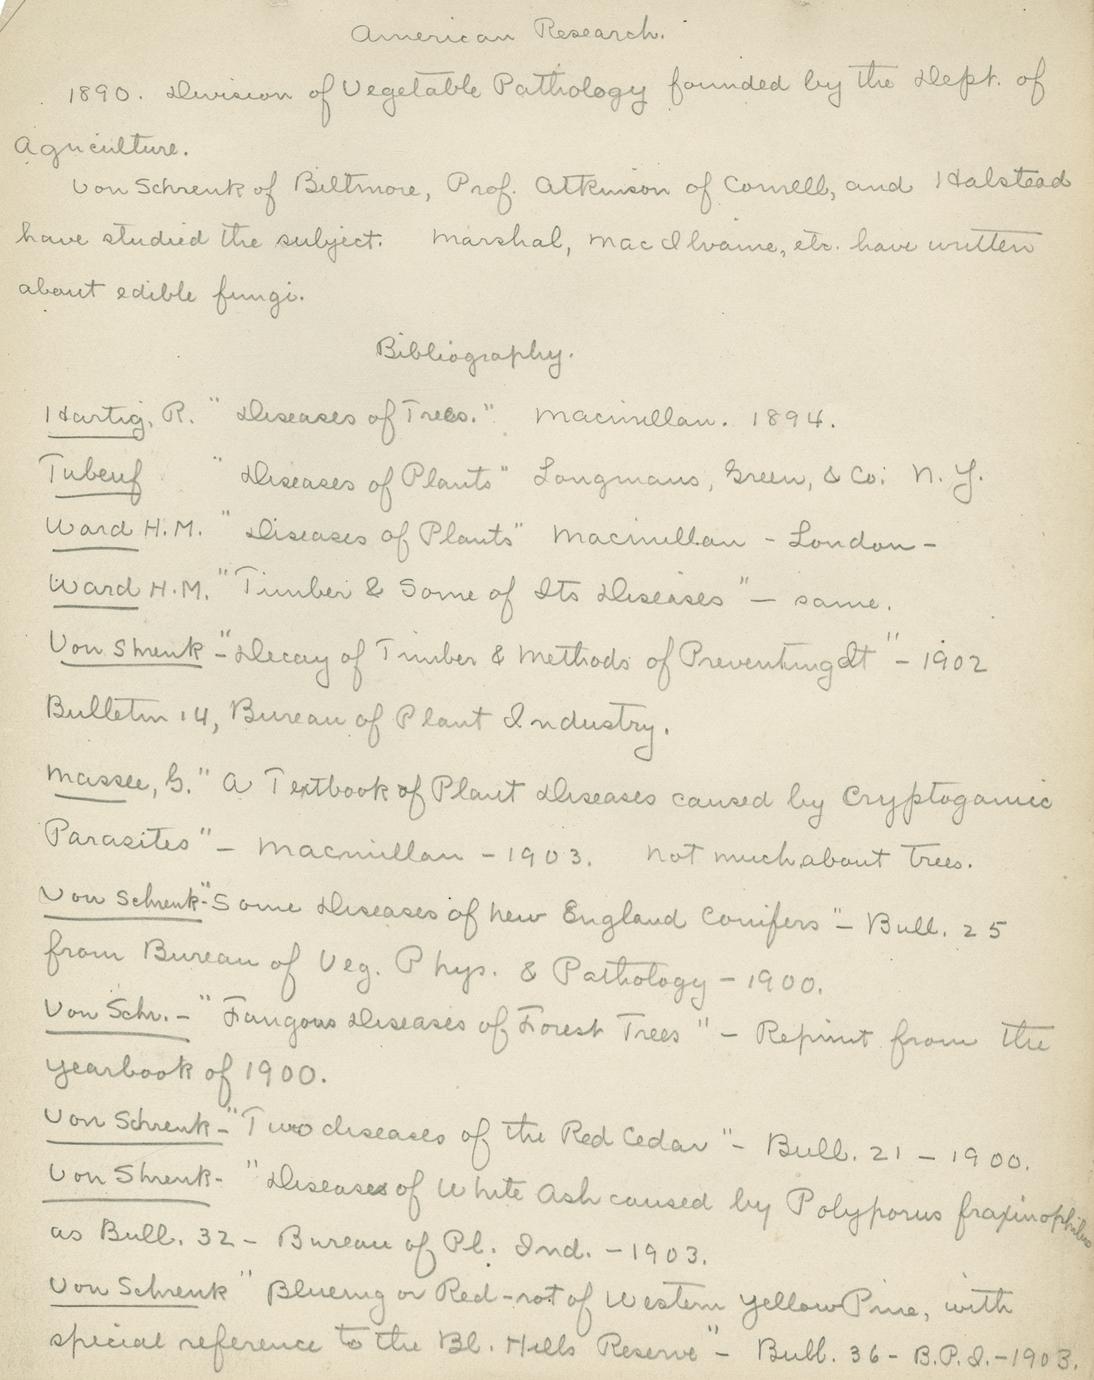 American Research.
1890. Division of Vegetable Pathology founded by the Dept. of
Agriculture.
Von Schrenk of Biltmore, Prof. Atkinson of Cornell, and Halstead
have studied the subject. Marshal, MacIlvaine, etc. have written
about edible fungi.
Bibliography.
Hartig, R. "Diseases of Trees." Macmillan. 1894.
Tubeuf "Diseases of Plants" Longmans, Green, & Co. N. Y.
Ward H.M. "Diseases of Plants" Macmillan - London -
Ward H.M. "Timber & Some of Its Diseases" - same.
Von Shrenk - "Decay of Timber & Methods of Preventing It" - 1902
Bulletin 14, Bureau of Plant Industry.
Massee, G. "A Textbook of Plant Diseases caused by Cryptogamic
Parasites" - Macmillan - 1903. Not much about trees.
Von Schrenk - "Some Diseases of New England Conifers" - Bull. 25
from Bureau of Veg. Phys. & Pathology - 1900.
Von Schr. - "Fungous Diseases of Forest Trees" - Reprint from the
yearbook of 1900.
Von Schrenk - "Two diseases of the Red Cedar" - Bull. 21 - 1900.
Von Shrenk - "Diseases of White Ash caused by Polyporus fraxinophilus
as Bull. 32 - Bureau of Pl. Ind. - 1903.
Von Schrenk "Blueing or Red-rot of Western Yellow Pine, with
special reference to the Bl. Hills Reserve" - Bull. 36 - B.P.I. - 1903.